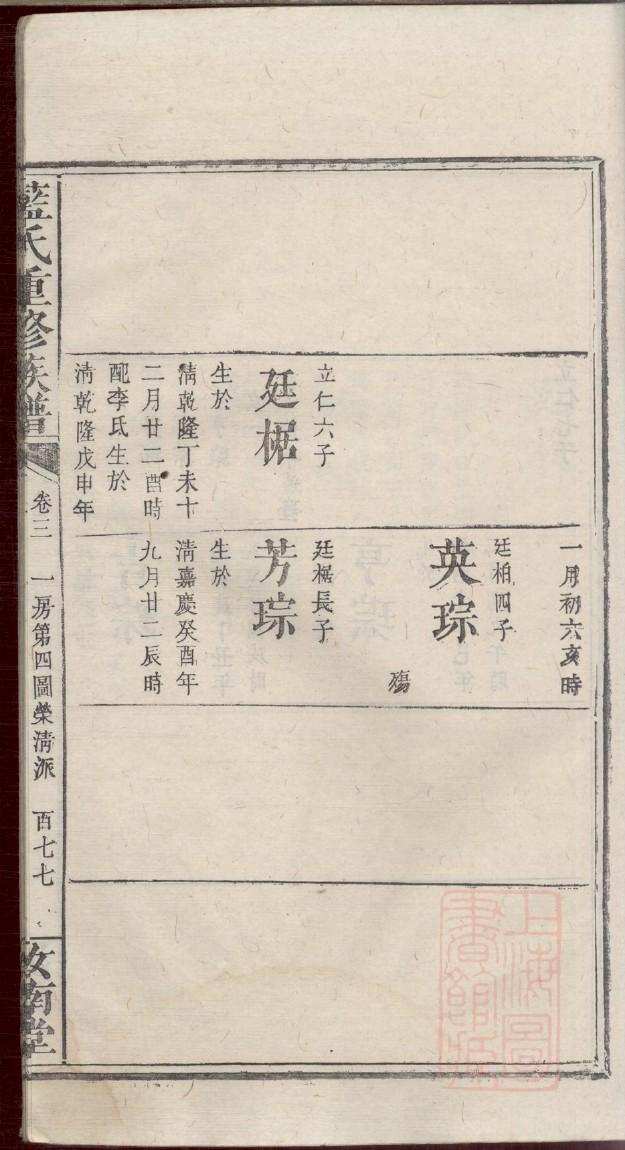 一月初六亥時
廷柏四子
英琮
殤
立仁六子
廷椐
生於
清乾隆丁未十
二月廿二酉時
配李氏生於
清乾隆戊申年
廷椐長子
芳琮
生於
清嘉慶癸酉年
九月廿二辰時
藍氏重修族譜
卷三
一房第四圖榮清派
百七七
汝南堂
上海圖
書館藏